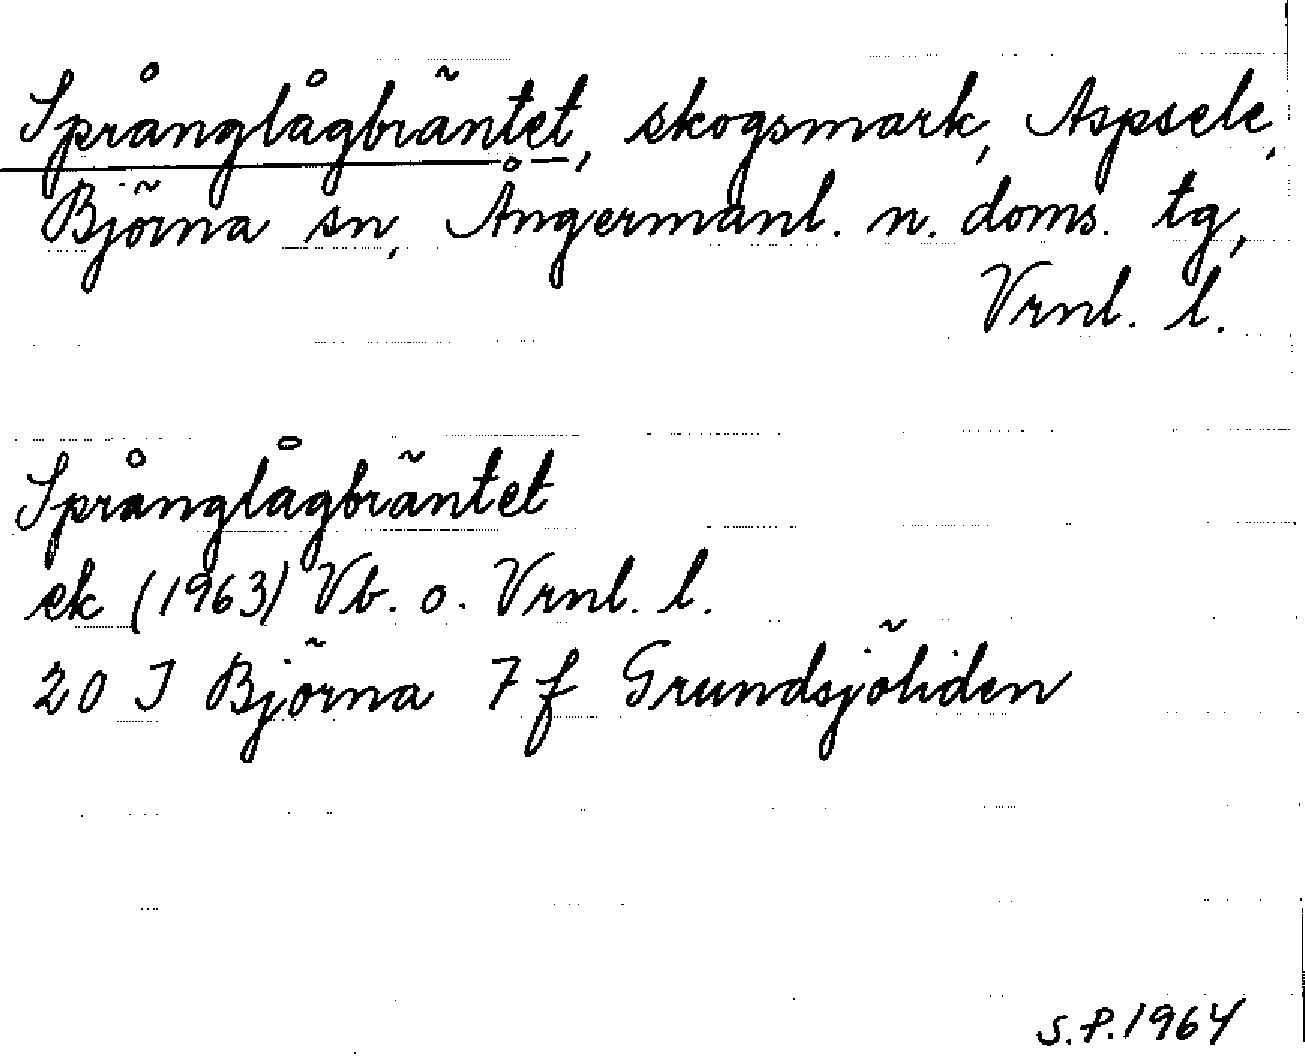 Språnglågbräntet, skogsmark, Aspsele,
Björna sn, Ångermanl. n. doms. tg,
Vrnl. l.
Språnglågbräntet
ek (1963) Vb. o. Vrnl. l.
20 J Björna 7 f Grundsjöliden
S.P. 1964